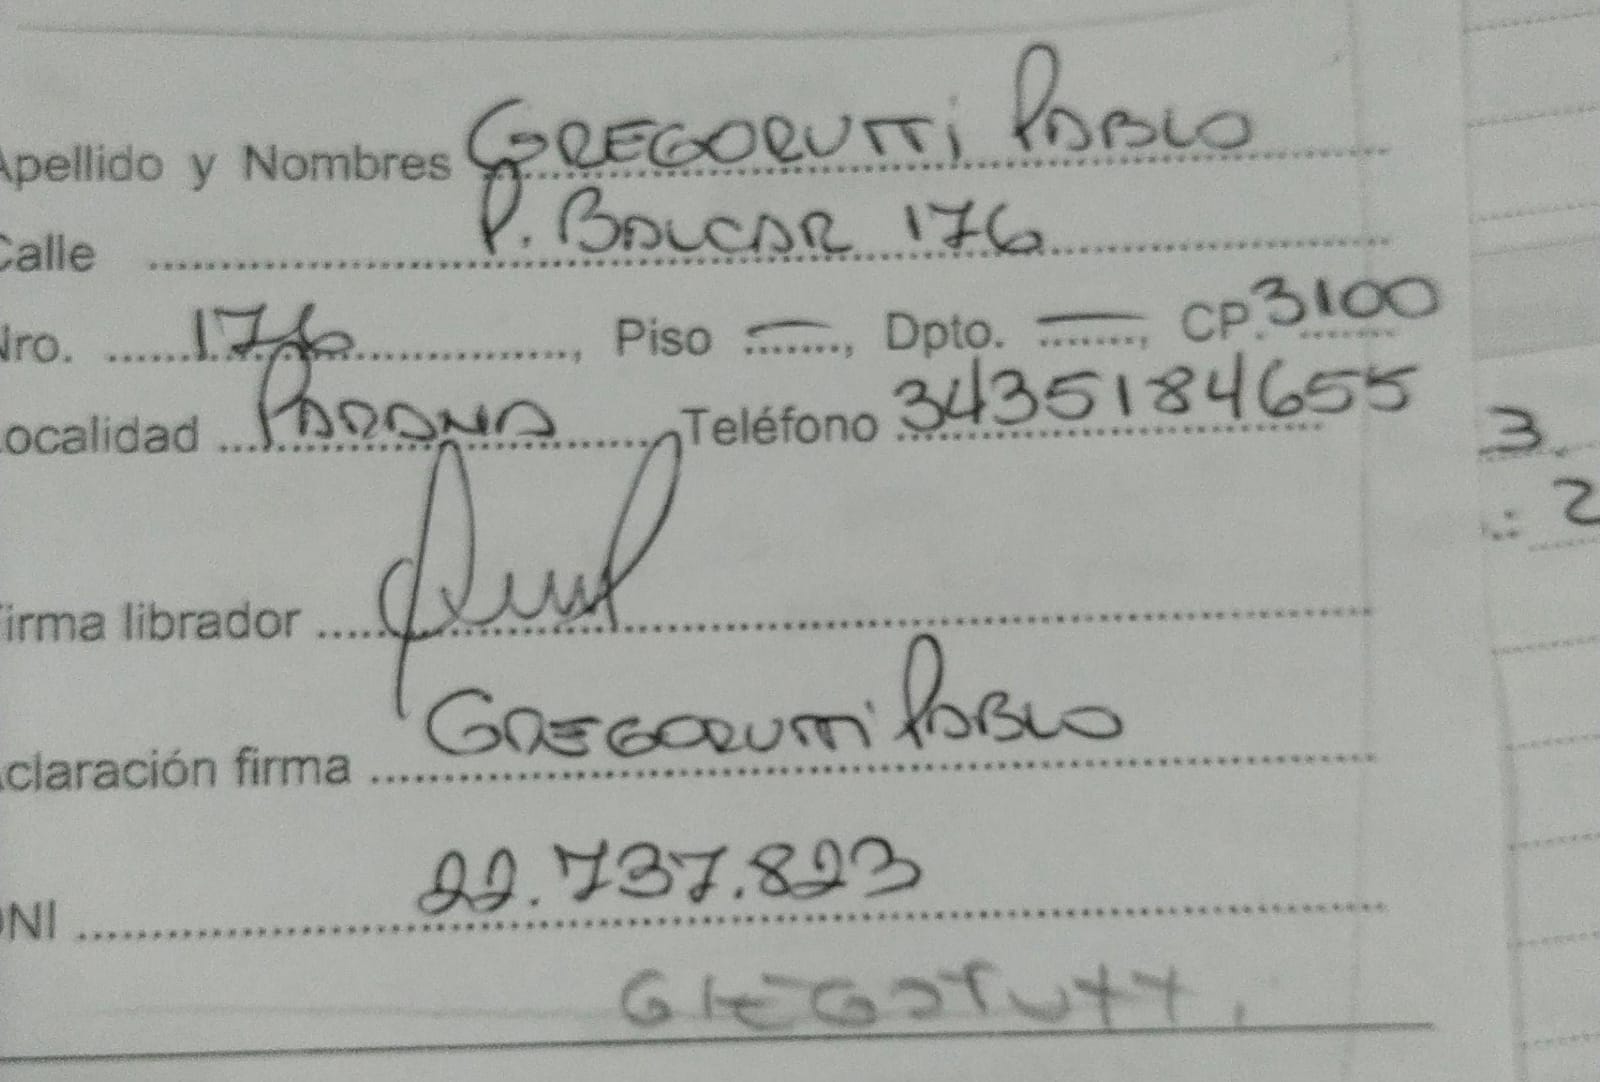 Apellido y Nombres GREGORUTTi PABLO
Calle P. BALCAR 176
Nro. 176, Piso —, Dpto. —, CP. 3100
Localidad PARANA Teléfono 3435184655
3.
: 2
Firma librador
Aclaración firma GREGORUTTi PABLO
DNI 22.737.823